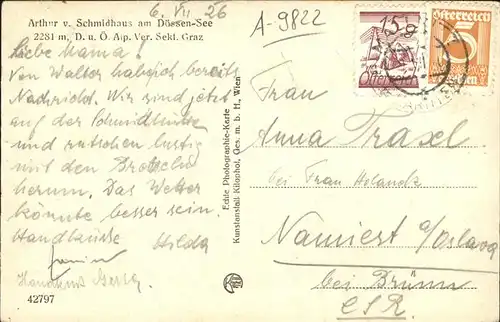 6. VII 26
A-9822
Arthur v. Schmidhaus am Dössen-See
2281 m, D. u. Ö. Alp. Ver. Sekt. Graz
Liebe Mama!
Von Walter hab ich bereits
Nachricht. Wir sind jetzt
auf der Schmidhütte
und rutschen lustig
mit den
herum. Das Wetter
könnte besser sein.
Handküsse Hilda
Handkuss
42797
Echte Photographie-Karte
Kunstanstalt Kilophot, Ges. m. b. H., Wien
15
Österreich
Österreich
5
Frau
Anna Traxel
bei Frau
Namiest a/Oslava
bei Brünn
ČSR.